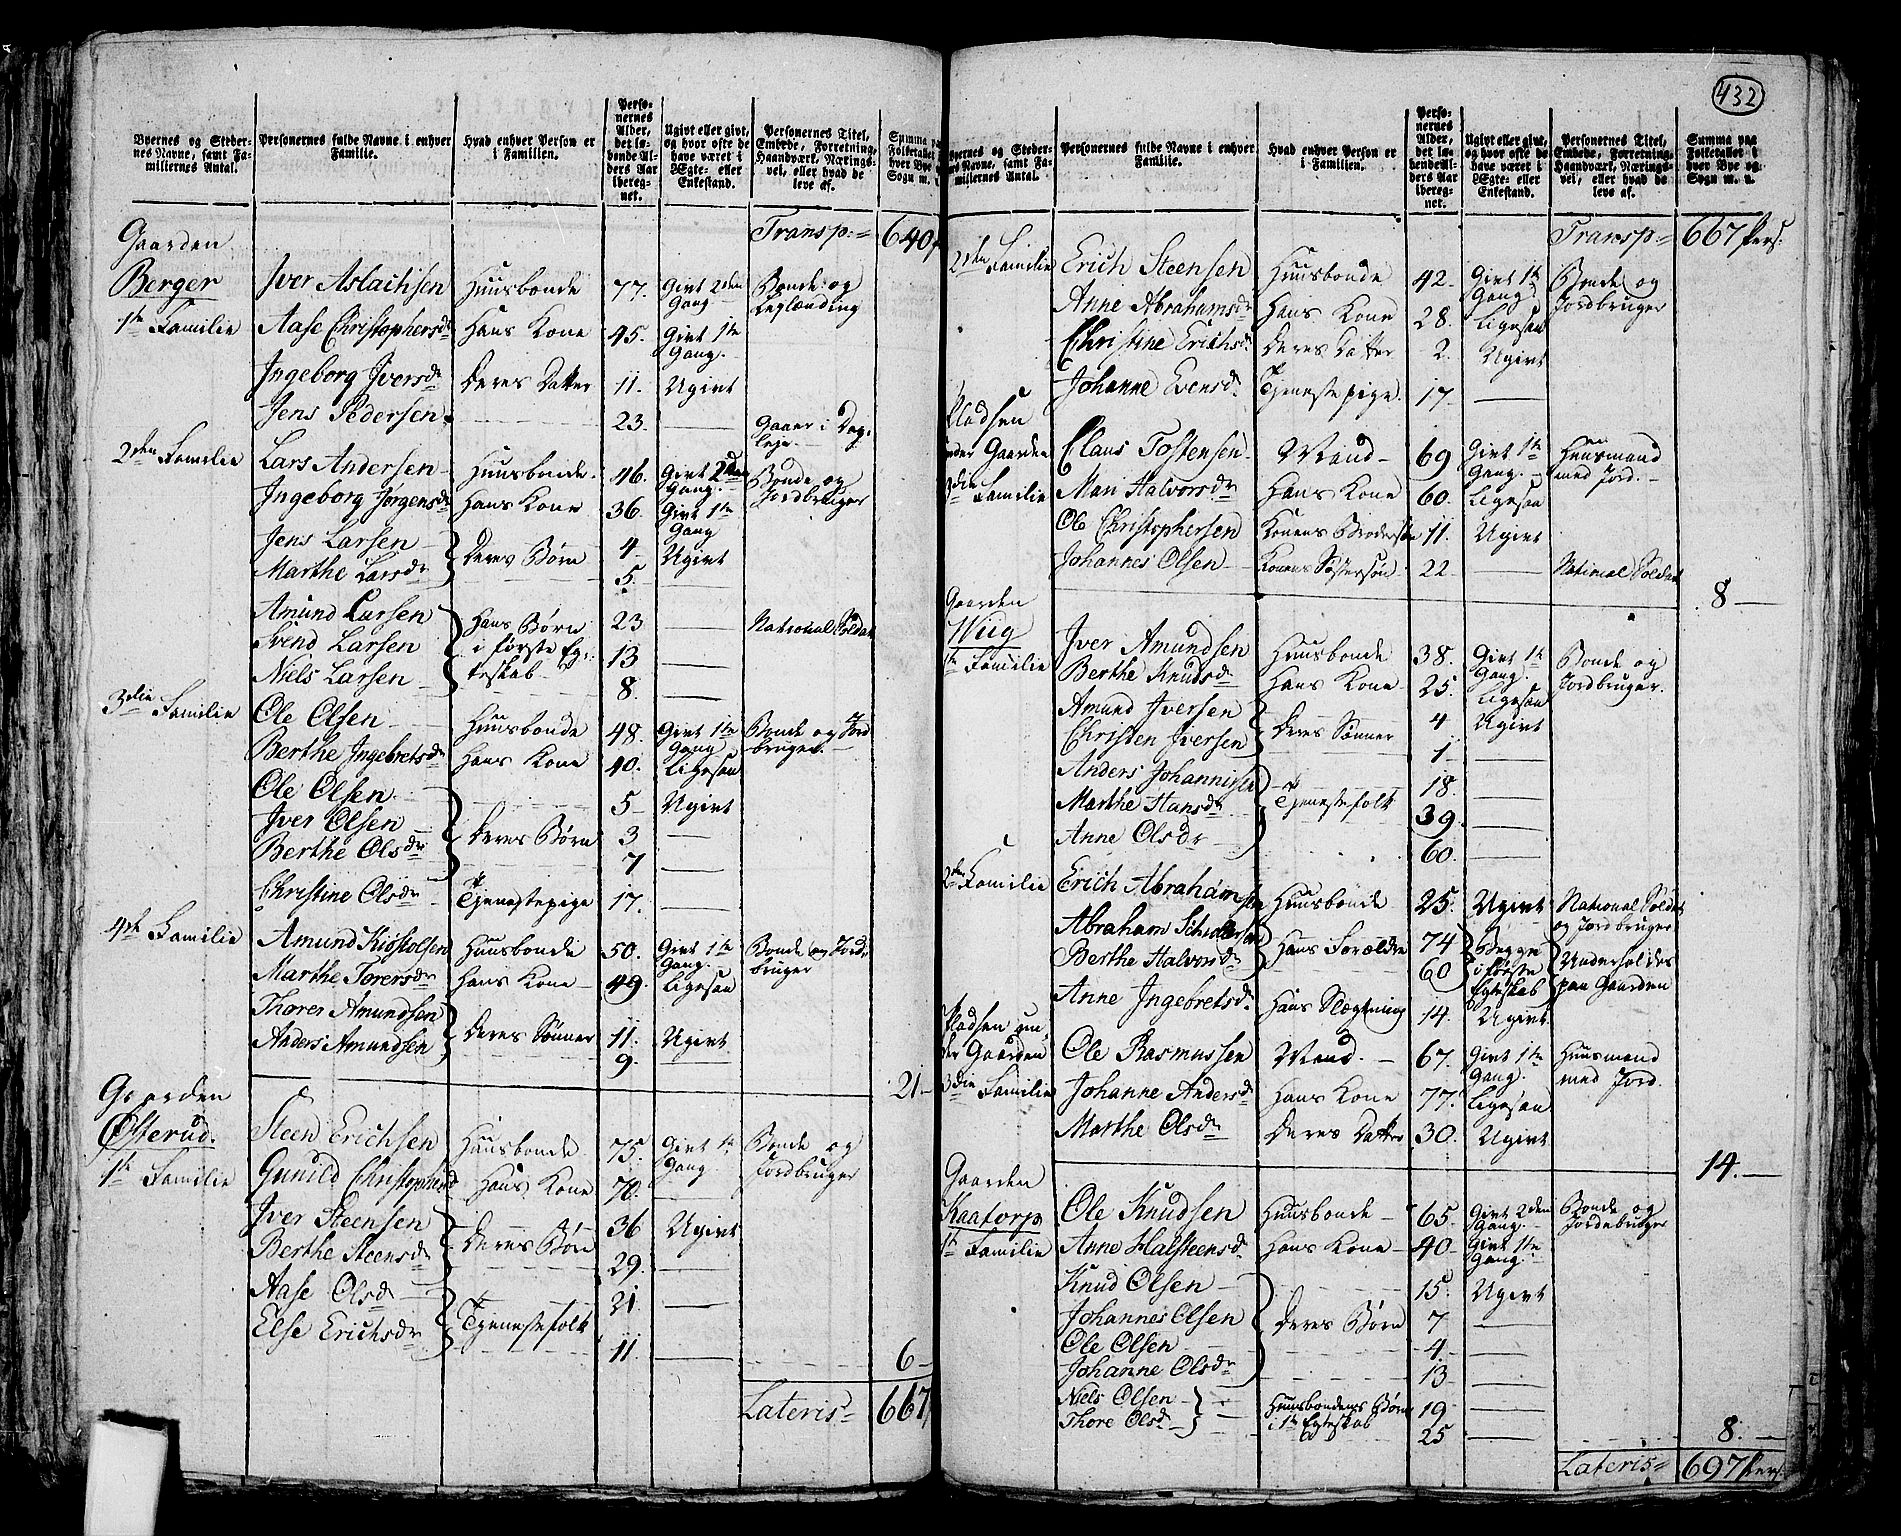 Byernes og Steder-
nes Navne, samt Fa-
miliernes Antal.
Personernes fulde Navne i enhver
Familie.
Hvad enhver Person er
i Familien.
Perso-
nernes
Alder,
det lø-
bende Al-
ders Aar
ibereg-
net.
Ugivt eller givt,
og hvor ofte de
have været i
Ægte- eller
Enkestand.
Personernes Titel,
Embede, Forretning,
Haandværk, Nærings-
vei, eller hvad de
leve af.
Summa
Folketallet
hver Bye
Sogn m.
Transp:= 640
Gaarden
Berger Iver Aslachsen Huusbonde 77. Givt 2den Gang Bonde og
1te Familie Aase Christophersdr Hans Kone 45. Givt 1te Gang.
Ingeborg Iversdr Deres Datter 11. Ugivt
Jens Pedersen 23. — Gaaer i Dag-
leje
2den Familie Lars Andersen Huusbonde 46. Givt 2den Gang. Bonde og Jordbruger
Ingeborg Jørgensdr Hans Kone 36. Givt 1te Gang
Jens Larsen Deres Børn 4 Ugivt
Marthe Larsdr 5.
Amund Larsen Hans Børn 23 — National Soldat
Svend Larsen i første Eg- 13 —
Niels Larsen teskab 8. —
3die Familie Ole Olsen Huusbonde 48. Givt 1te Gang Bonde og Jord-
bruger
Berthe Ingebretsdr Hans Kone 40. Ligesaa
Ole Olsen 5 Ugivt
Iver Olsen Deres Børn 3 —
Berthe Olsdr 7 —
Christine Olsdr Tjenestepige 17. —
4de Familie Amund Kiøstolsen Huusbonde 50. Givt 1te Gang. Bonde og Jord-
bruger
Marthe Torersdr Hans Kone 49. Ligesaa
Thorer Amundsen Deres Sønner 11. Ugivt
Anders Amundsen 9. —
21
Gaarden
Østerud. Steen Erichsen Huusbonde 75. Givt 1te Gang. Bonde og
Jordbruger
1te Familie Gunild Christophersd Hans Kone 70. —
Iver Steensen Deres Børn 36 Ugivt
Berthe Steensdr 29. —
Aase Olsd Tjenestefolk 21. —
Else Erichsdr 11. —
6
Lateris= 667
432
Byernes og Steder-
nes Navne, samt Fa-
miliernes Antal.
Personernes fulde Navne i enhver
Familie.
Hvad enhver Person er
i Familien.
Perso-
nernes
Alder,
det lø-
bende Al-
ders Aar
ibereg-
net.
Ugivt eller givt,
og hvor ofte de
have været i
Ægte- eller
Enkestand.
Personernes Titel,
Embede, Forretning,
Haandværk, Nærings-
vei, eller hvad de
leve af.
Summa paa
Folketallet i
hver Bye og
Sogn m. v.
Transp= 667 Pers:
2den Familie Erich Steensen Huusbonde 42. Givt 1te Gang. Bonde og
Jordbruger
Anne Abrahamsdr Hans Kone 28. Ligesaa
Christine Erichsdr Deres Datter 2. Ugivt
Johanne Evensdr Tjenestepige. 17. —
Pladsen
under Gaarden Claus Tostensen Mand 69 Givt 1te Gang. Huusmand
med Jord.
3die Familie Mari Halvorsdr Hans Kone 60. Ligesaa
Ole Christophersen Konens Brodersøn 11. Ugivt
Johannes Olsen Konens Søstersøn 22 — National Soldat
8
Gaarden
Wiig Iver Amundsen Huusbonde 38. Givt 1te Gang. Bonde og
Jordbruger.
1te Familie Berthe Knudsdr Hans Kone 25. Ligesaa
Amund Iversen Deres Sønner 4 Ugivt
Christen Iversen 1 —
Anders Johannisen Tjenestefolk 18. —
Marthe Hansdr 39. —
Anne Olsdr 60. —
2den Familie Erich Abrahamsen Huusbonde 25. Ugivt National Soldat
og Jordbruger
Abraham Hans Forældre 74 Begge Underholdes
Berthe Halvorsdr 60 i første Egteskab paa Gaarden
Anne Ingebretsdr Hans Slægtning 14. Ugivt
Pladsen un-
der Gaarden Ole Rasmussen Mand. 67. Givt 1te Gang. Huusmand
med Jord.
3die Familie Johanne Andersdr Hans Kone 77. Ligesaa
Marthe Olsdr Deres Datter 30. Ugivt
14.
Gaarden
Kaatorp Ole Knudsen Huusbonde 65. Givt 2den Gang Bonde og
Jordebruger
1te Familie Anne Halsteensdr Hans Kone 40. Givt 1te Gang.
Knud Olsen 15. Ugivt
Johannes Olsen Deres Børn 7 —
Ole Olsen 4. —
Johanne Olsdr 13 —
Niels Olsen Huusbondens Børn 19 —
Thore Olsd i 1te Egteskab 25 —
8.
Lateris= 697 Pers.